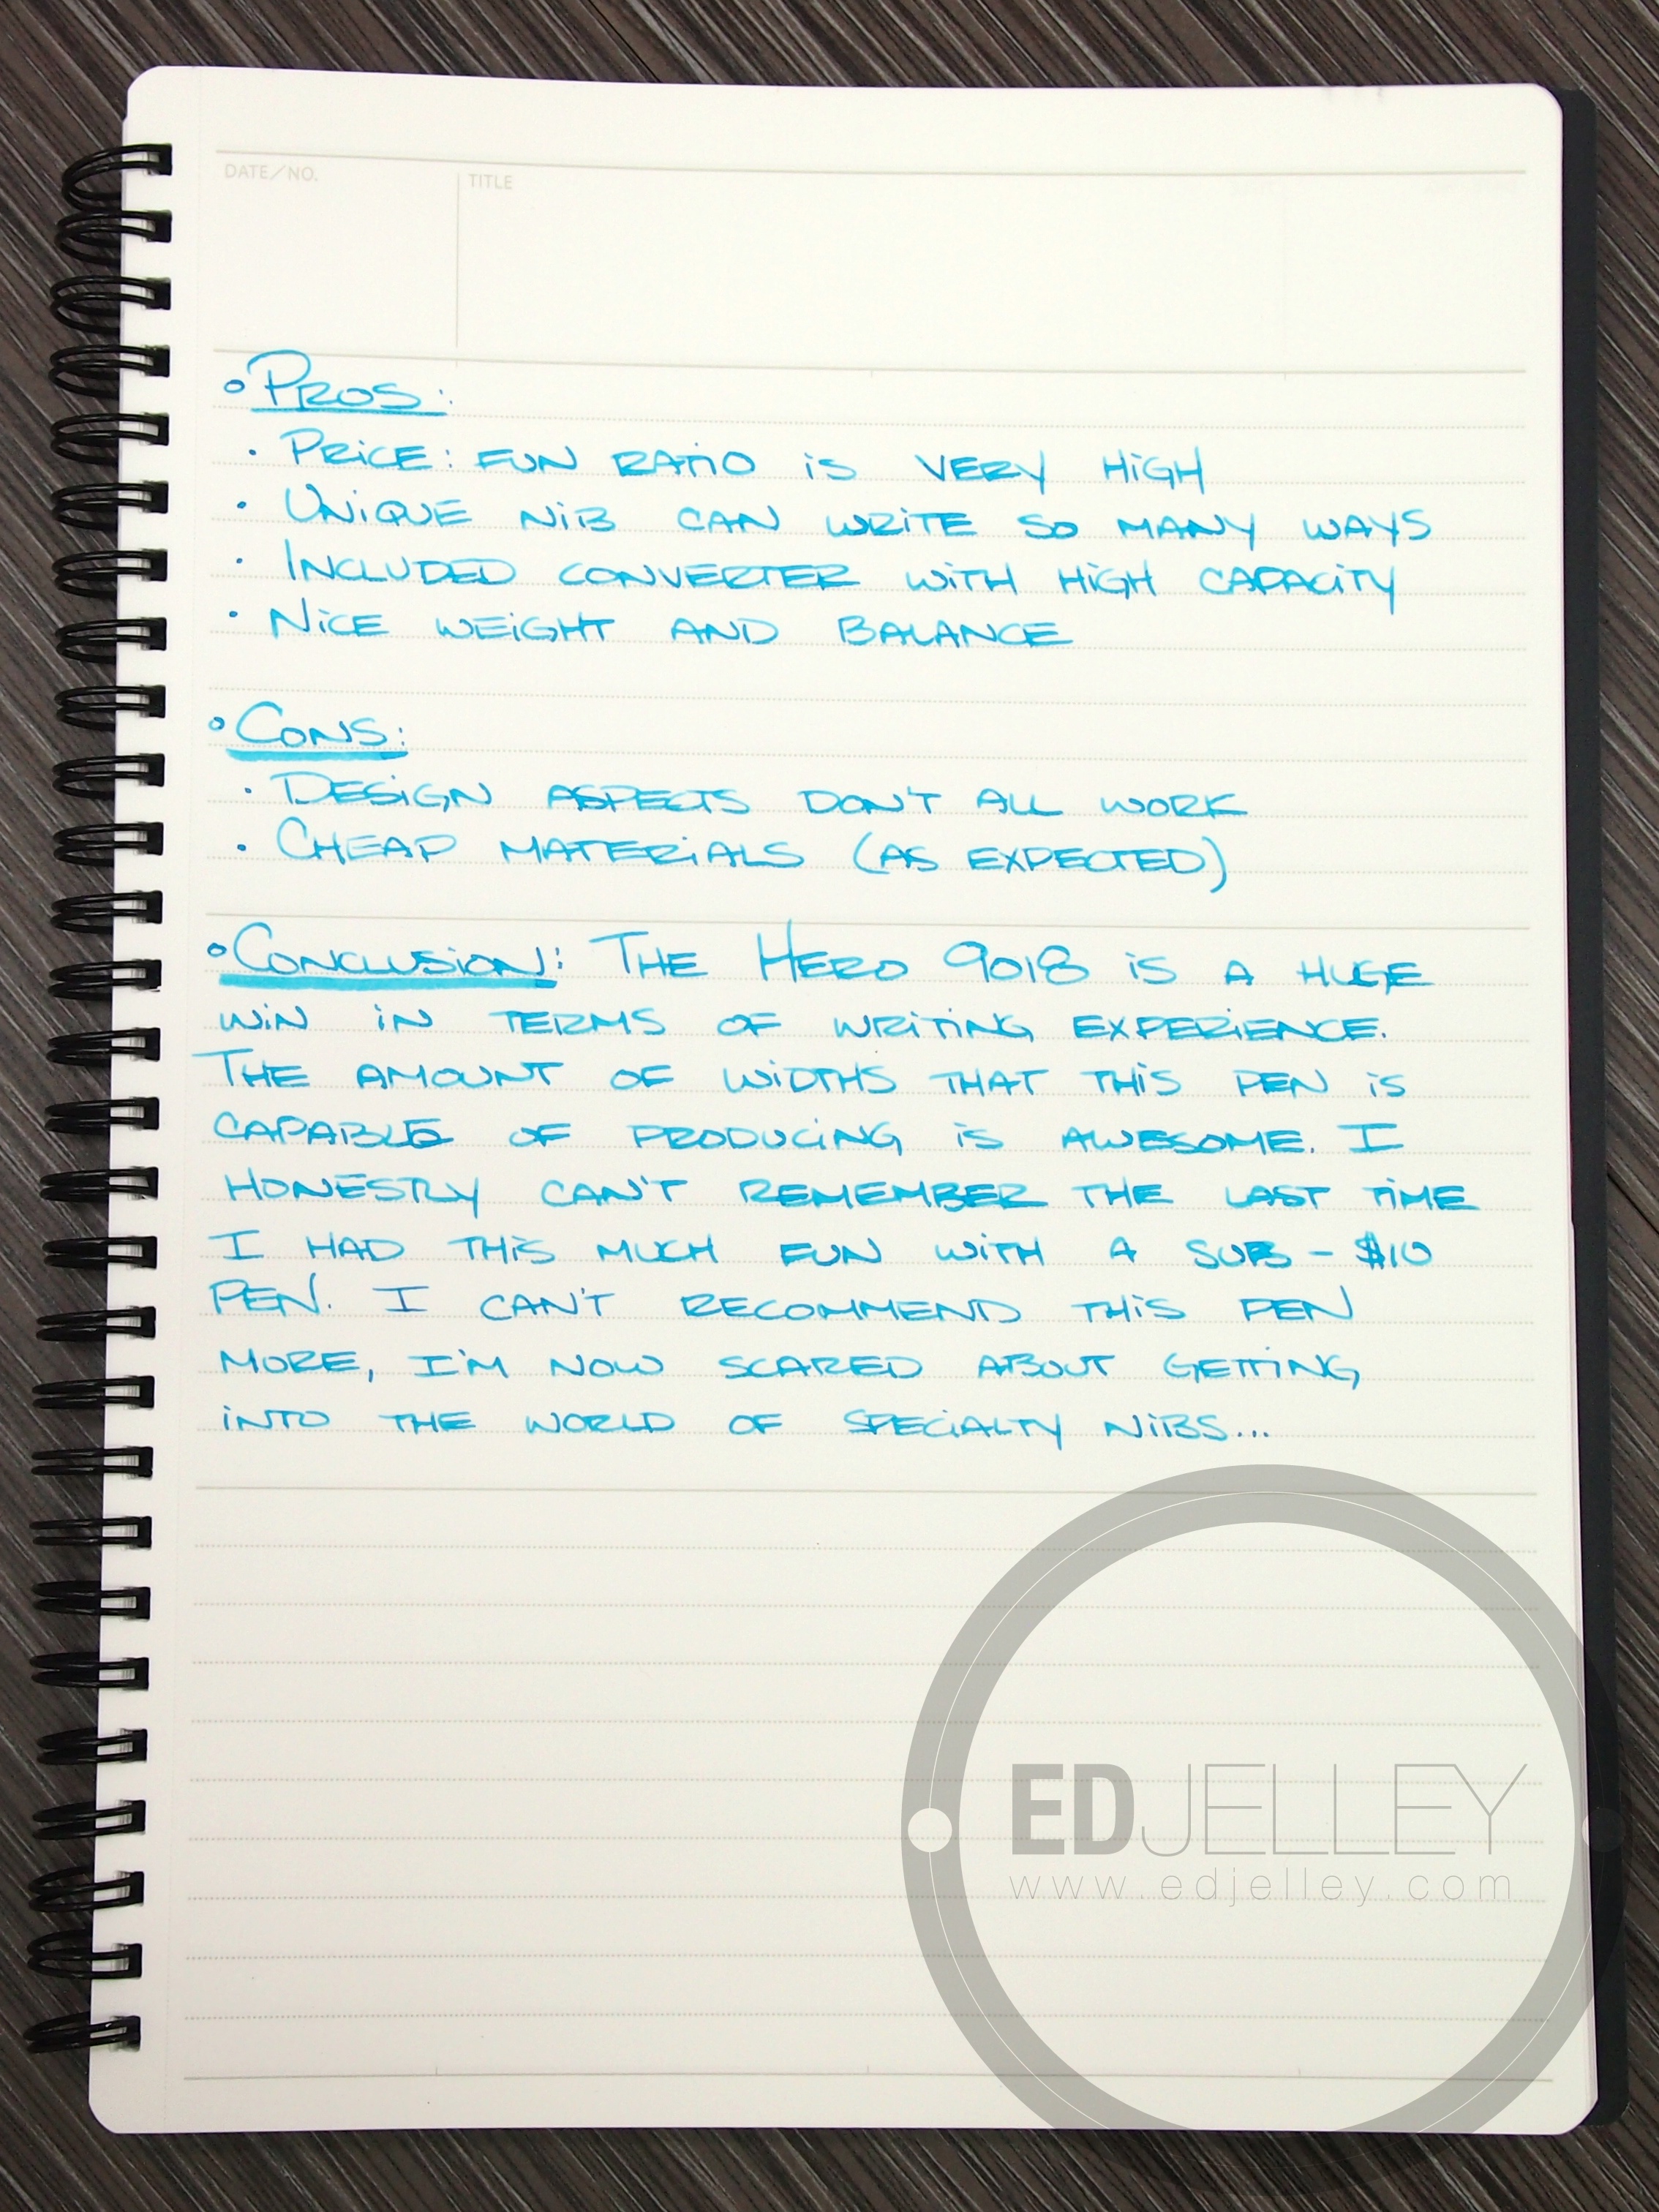 DATE/NO.
TITLE
• PROS:
• PRICE: FUN RATIO IS VERY HIGH
• UNIQUE NIB CAN WRITE SO MANY WAYS
• INCLUDED CONVERTER WITH HIGH CAPACITY
• NICE WEIGHT AND BALANCE
• CONS:
• DESIGN ASPECTS DON'T ALL WORK
• CHEAP MATERIALS (AS EXPECTED)
• CONCLUSION: THE HERO 9018 IS A HUGE
WIN IN TERMS OF WRITING EXPERIENCE.
THE AMOUNT OF WIDTHS THAT THIS PEN IS
CAPABLE OF PRODUCING IS AWESOME. I
HONESTLY CAN'T REMEMBER THE LAST TIME
I HAD THIS MUCH FUN WITH A SUB-$10
PEN. I CAN'T RECOMMEND THIS PEN
MORE, I'M NOW SCARED ABOUT GETTING
INTO THE WORLD OF SPECIALTY NIBS...
EDJELLEY
www.edjelley.com